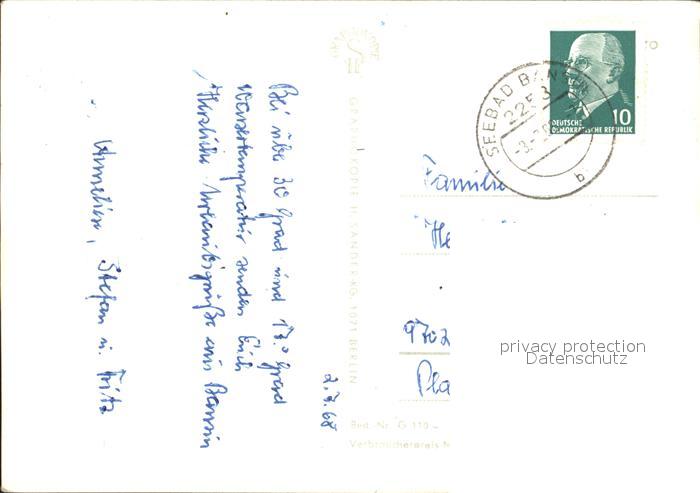 2.7.68
Bei über 30 Grad und 17° Grad
Wassertemperatur senden Euch
Herzliche Urlaubsgrüße aus Bansin
Stefan u. Fritz
GRAPHOKOPIE H. SANDER KG, 1071 BERLIN
Best.-Nr. G 110
Verbraucherpreis M
SEEBAD BANSIN
2253
b
10
DEUTSCHE
DEMOKRATISCHE REPUBLIK
Familie
He
9702
Pla
privacy protection
Datenschutz